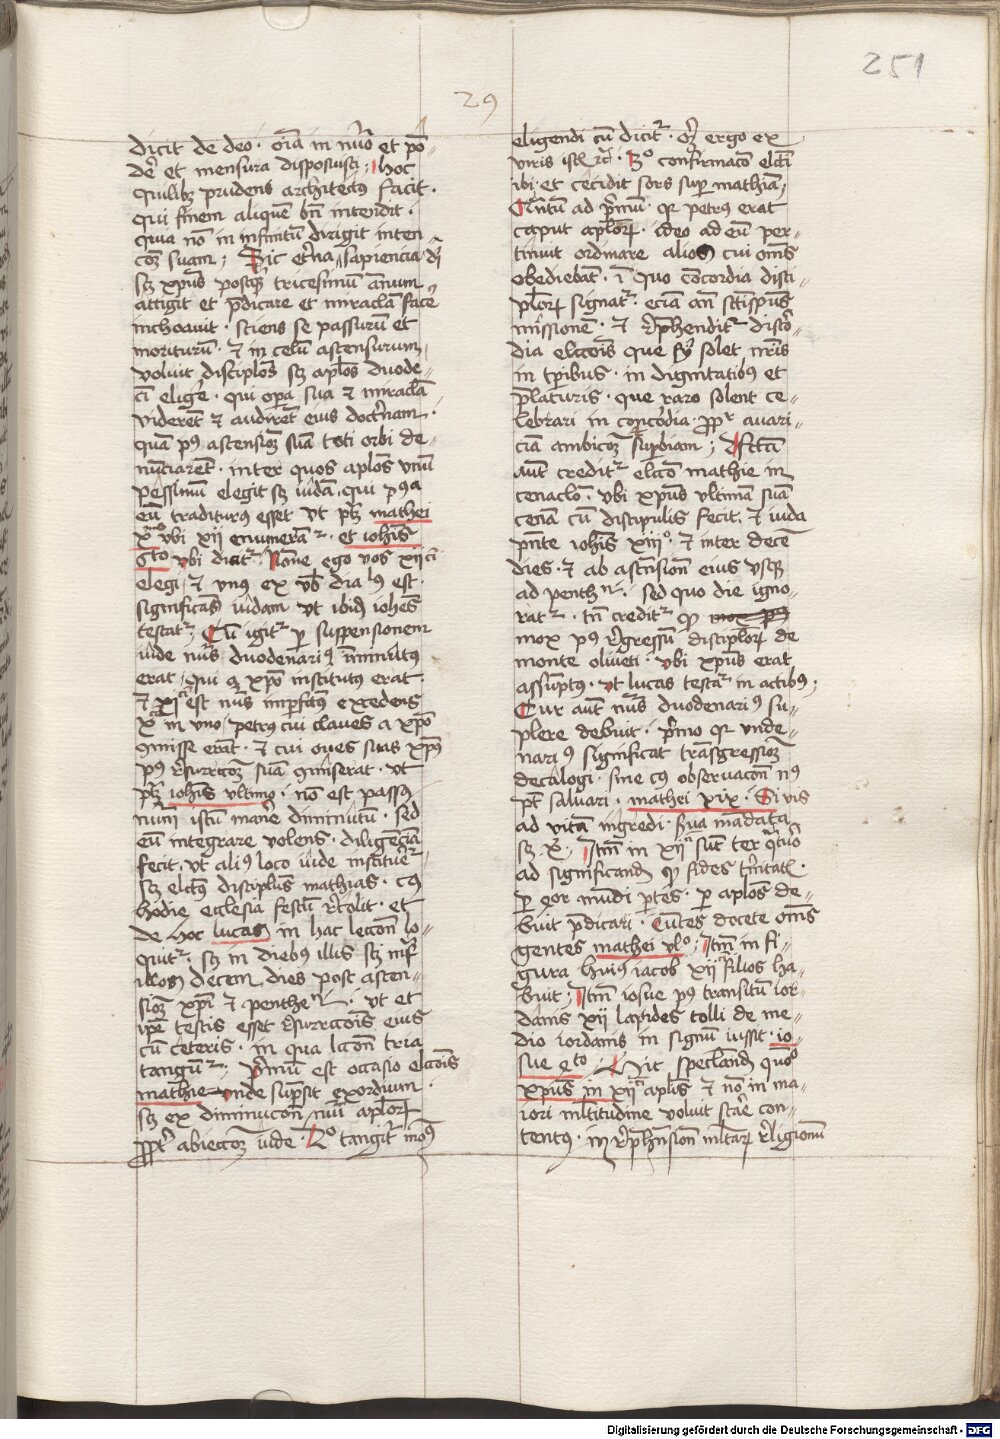 251
29
dicit de deo · oīa in nūo et pō-
dēr et mensura disposuisti · hoc
quilibz prudens architectus facit ·
qui finem aliquē bn̄ intendit ·
quia nō in infinitū dirigit inten-
cōz suam · Sic etr̄na sapiencia dī
sꝫ xpūs postqz tricesimū annum
attigit et p̄dicare et miracl̄a face
inchoauit · sciens se passurū et
moriturū · et in celū astensurum
voluit discipl̄os sꝫ apl̄os duode-
cī eligēr · qui opēra sua et miracl̄a
viderēt et audirēt eius doctr̄inam ·
quā pꝰ astensiōz suā toti orbi de-
nūciarēt · inter quos apl̄os vnū
pessimū elegit sꝫ iudā · qui pꝰea
eū traditurꝰ esset vt ptꝫ mathei
xº vbi xij enumerāt · et iohīs
sexto vbi dicit · Nōne ego vos xij
elegi et vnꝰ ex vob̄ diablꝰ est ·
significās iudam vt ibidē iohēs
testat · Cū igitur per suspensionem
iude nūs duodenariꝰ īminutus
erat qui a xpō institutus erat ·
et xi est nūs imp̄fctūs excedens
x in vno petrus cui claues a xpō
cōmisse erāt · et cui oues suas xpūs
pꝰ resurrectōz suā cōmiserat · vt
ptꝫ iohīs vltimo · nō est passus
nūm istū manēr diminutū · sed
eū integrare volens · diligēciā
fecit vt aliꝰ loco iude institueretur
sꝫ electꝰ discipl̄us mathias · cuiꝰ
hodie ecclesia festū recolit · et
de hoc lucas in hac lectiōn lo-
quitur · sꝫ in diebꝰ illis sꝫ infra
illos decem dies post asten-
siōz xpī et penthe · vt et
ip̄e testis esset resurrectōis eius
cū ceteris · in qua lectōn tria
tangūtur · Primū est occasio electōis
mathie vnde supsit exordium ·
sꝫ ex diminucōn nūi apl̄or
propter abiectōz iude · 2º tangitur modꝰ
eligendi cū dicitur · oꝫ ergo ex
viris istis · 3º confirmacō electī
ibi · et cecidit sors super mathiā
Quātū ad primū · qr petrus erat
caput apl̄or · ideo ad eū per-
tinuit ordinare alios cui oēs
obediebāt · in quo cōcordia disci-
pl̄or signatur · eciā an sct̄ispūs
missionē · et reprehenditur discor-
dia electōis que solet nr̄is
in tp̄ribus · in dignitatibus et
prelaturis · que raro solent ce-
lebrari in concordia · propter auari-
ciā ambicōz superbiam ·
autem creditur electō mathie in
cenaclo · vbi xpūs vltimā suā
cenā cū discipulis fecit · et iuda
pn̄te iohīs xiijº · et inter decē
dies · et ab astensiōn eius vsqz
ad penth · sed quo die igno-
ratur · tn̄ creditur qꝫ mox pꝰ
mox pꝰ regressū discipl̄or de
monte oliueti · vbi xpūs erat
assūptus · vt lucas testatur in actibꝰ ·
Cur autem nūs duodenariꝰ su-
plere debuit · primo qr vnde-
nariꝰ significat trāsgressiōz
decalogi · sine cuiꝰ obseruacōn nꝰ
pt saluari · mathei xix · Si vis
ad vitā ingredi · serua mādata
sꝫ x · Itm̄ in xij sūt ter quatuor
ad significandū qꝫ fides trinitatis
per quatuor mūdi partes · per apl̄os de-
buit predicari · Eūtes docete oēs
gentes mathei vlº · Itm̄ in fi-
gura huius iacob xij filios ha-
buit · Itm̄ iosue pꝰ transitū ior-
danis xij lapides tolli de me-
dio iordanis in signū iussit · io-
sue 4to · Sic speclandū quō
xpūs in xij apl̄is et nō in ma-
iori mltitudine voluit stare con-
tentus · in reprehensionē mltar religionū
Digitalisierung gefördert durch die Deutsche Forschungsgemeinschaft - DFG